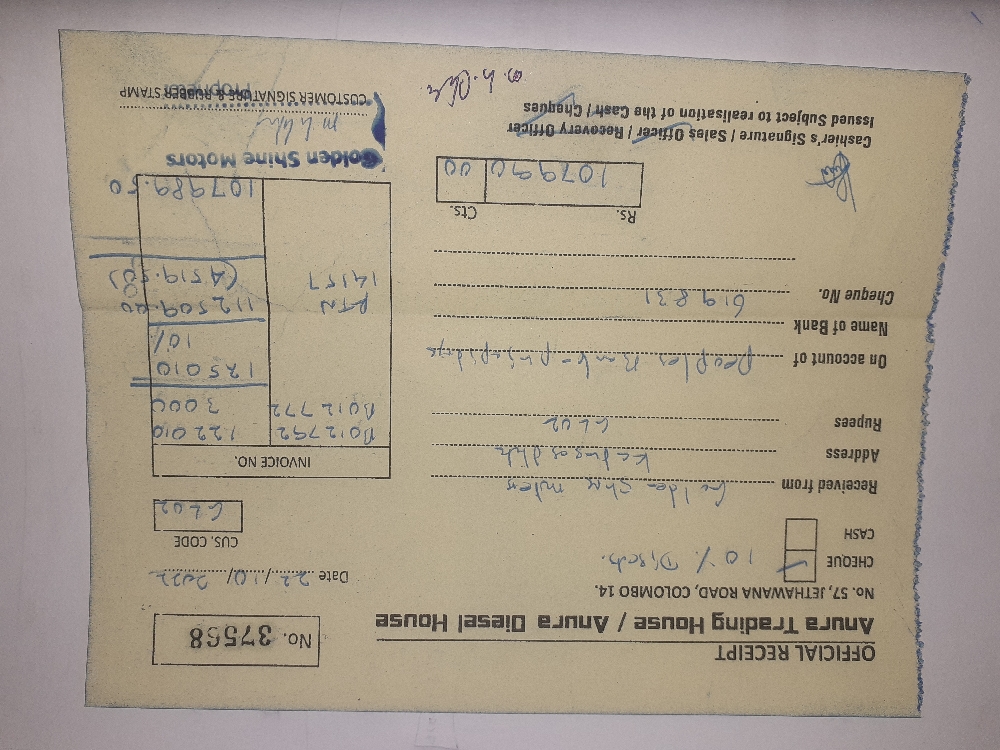 OFFICIAL RECEIPT
Anura Trading House / Anura Diesel House
No. 37568
No. 57, JETHAWANA ROAD, COLOMBO 14.
Date 22/10/2022
CHEQUE ✓ 10% Disch.
CASH
CUS. CODE
GL02
Received from Golden Shine motors
Address
Rupees GL02
On account of Peoples Bank -
Name of Bank
Cheque No. 619831
Rs. Cts.
107990 00
INVOICE NO.
B012792 122010
B012772 3000
125010
10%
112509.00
RTN
14157 (4519.50)
107989.50
Cashier's Signature / Sales Officer / Recovery Officer
Issued Subject to realisation of the Cash / Cheques
Golden Shine Motors
CUSTOMER SIGNATURE & RUBBER STAMP
Proprietor